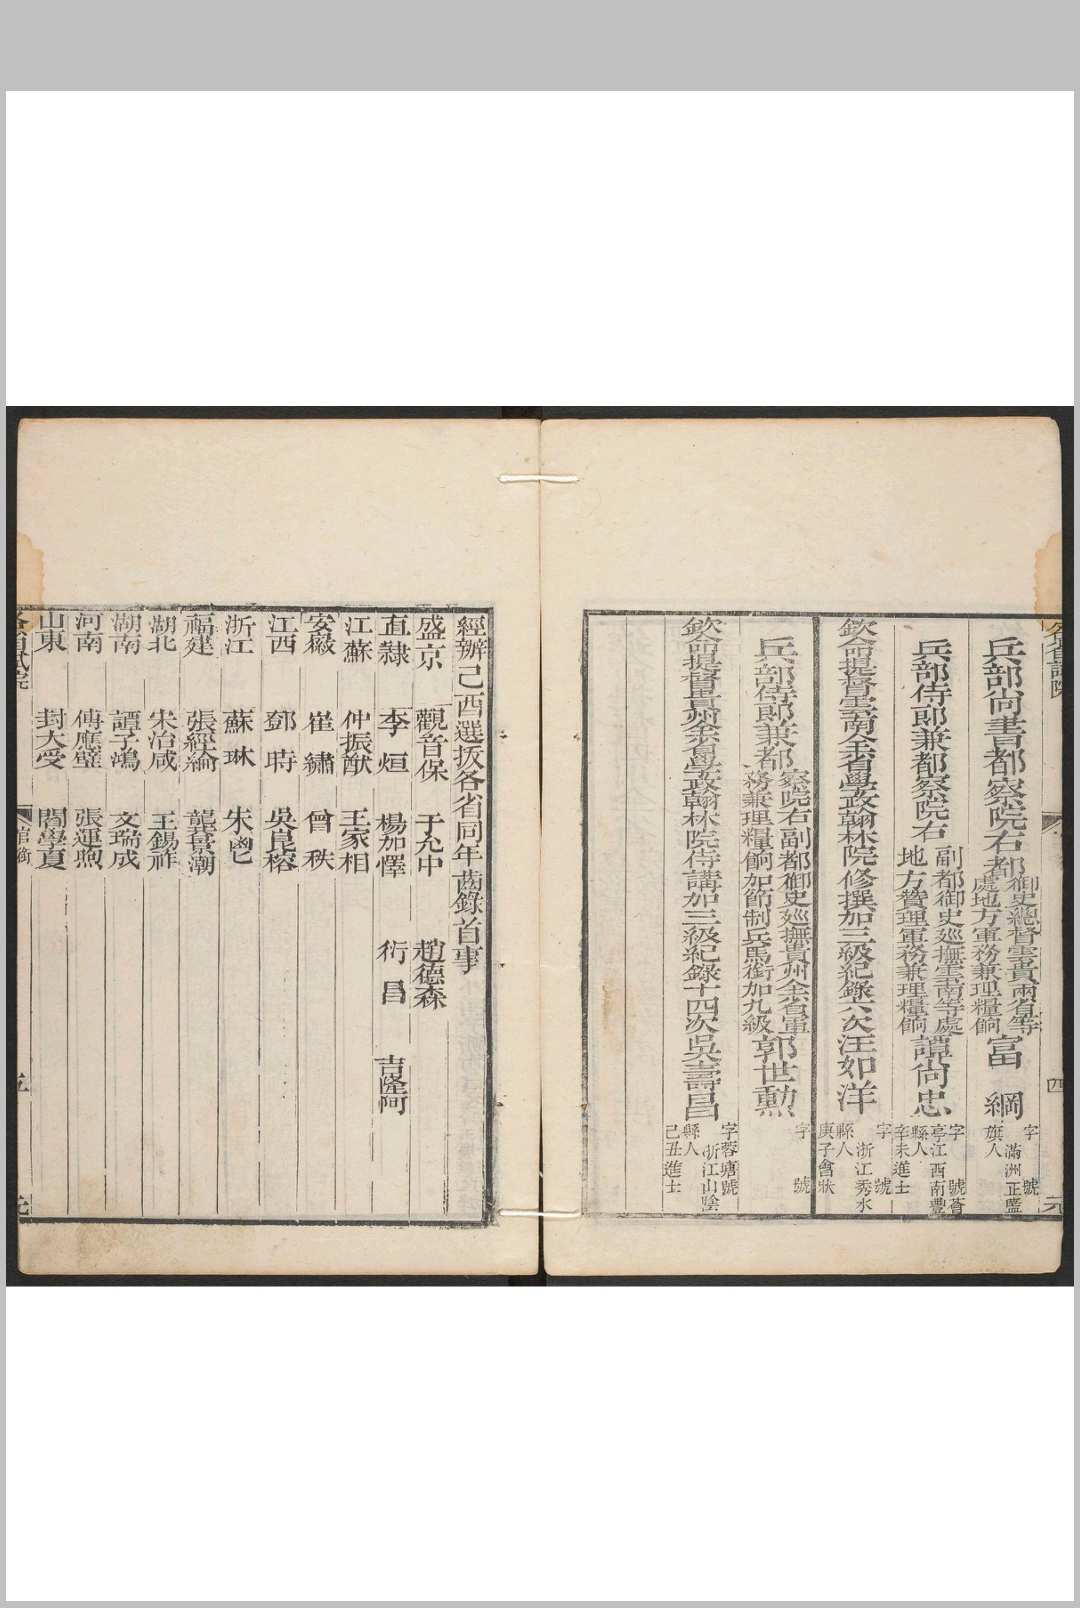 兵部尚書都察院右都御史總督雲貴兩省等處地方軍務兼理糧餉富 綱 字 號 滿洲正藍旗人
兵部侍郎兼都察院右副都御史廵撫雲南等處地方贊理軍務兼理糧餉譚尚忠 字 號薈亭江西南豐縣人辛未進士
欽命提督雲南全省學政翰林院修撰加三級紀錄六次汪如洋 字 號 浙江秀水縣人庚子會狀
兵部侍郎兼都察院右副都御史廵撫貴州全省軍務兼理糧餉加節制兵馬銜加九級郭世勳 字 號
欽命提督貴州全省學政翰林院侍講加三級紀錄十四次吳壽昌 字蓉塘號 浙江山陰縣人己丑進士
經辦己酉選拔各省同年齒錄首事
盛京 觀音保 于允中 趙德森
直隸 李 烜 楊加懌 衍 昌 吉隆阿
江蘇 仲振猷 王家相
安徽 崔 繡 曾 秩
江西 鄧 時 吳良榕
浙江 蘇 琳 朱鬯
福建 張經綸 龍景潮
湖北 宋治咸 王錫祚
湖南 譚子鴻 文瑞成
河南 傅應璧 張運煦
山東 封大受 閻學夏